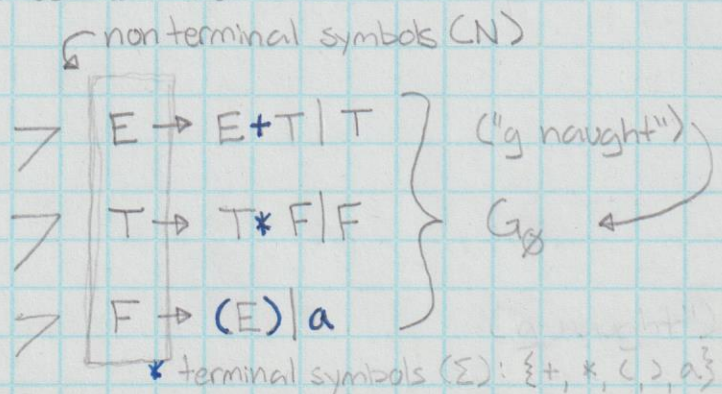 nonterminal symbols (N)
> E → E + T | T ("g naught")
> T → T * F | F G₀
> F → (E) | a
("g naught")
* terminal symbols (Σ): {+, *, (, ), a}